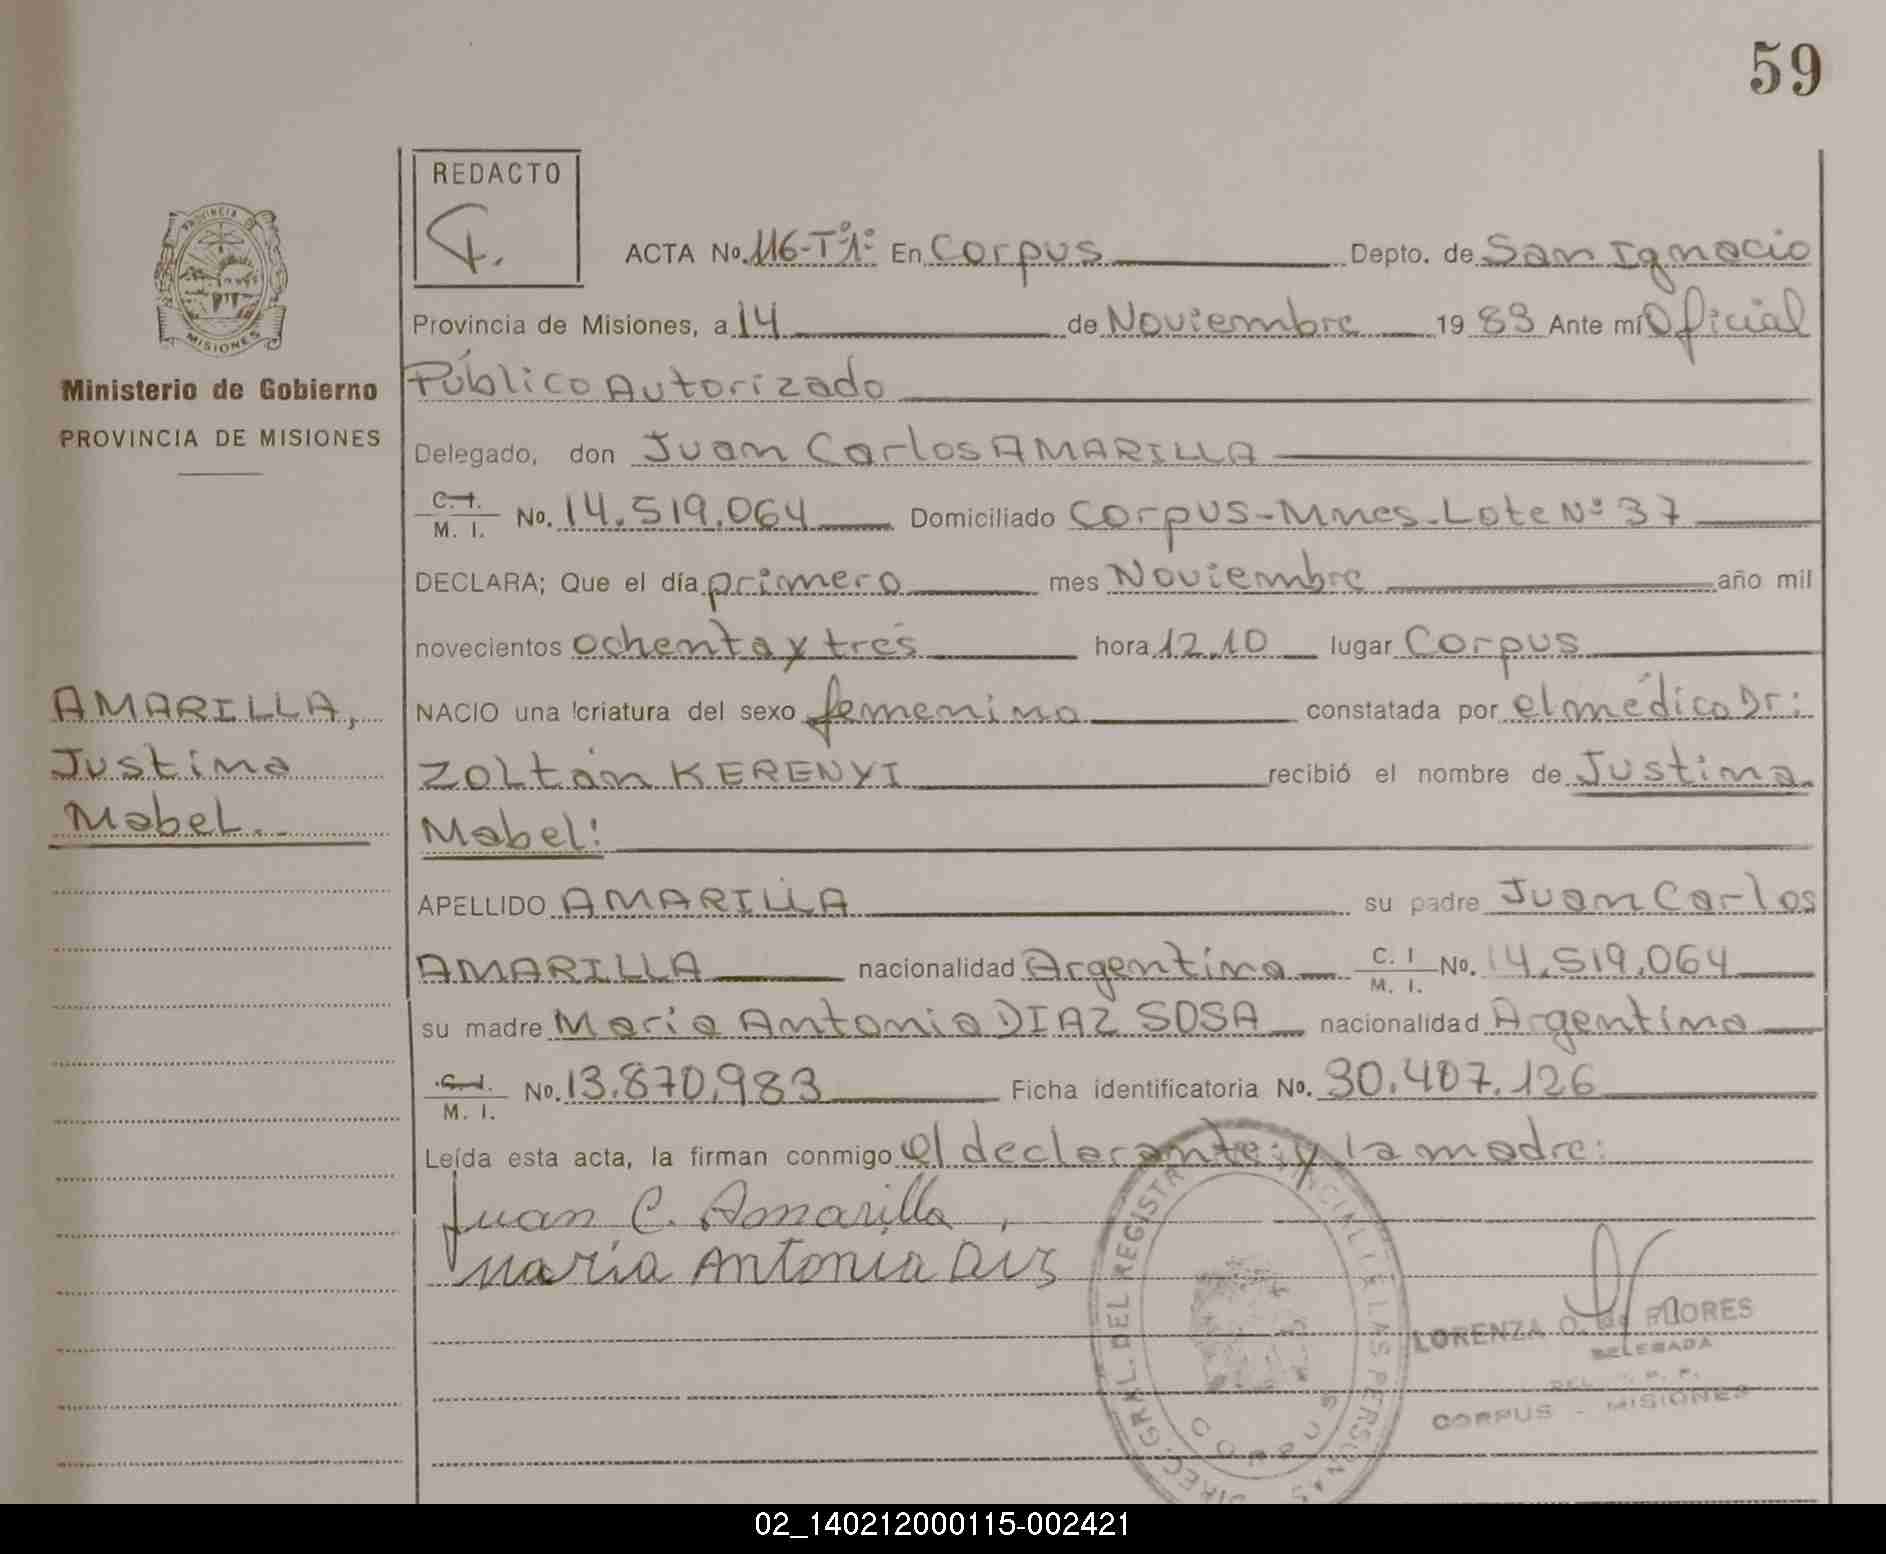 59
REDACTO
ACTA No. 116-Tº1º En Corpus Depto. de San Ignacio
Provincia de Misiones, a 14 de Noviembre 1983 Ante mí Oficial
Ministerio de Gobierno
Público Autorizado
PROVINCIA DE MISIONES
Delegado, don Juan Carlos AMARILLA
C. I. M. I. No. 14.519.064 Domiciliado Corpus-Mnes-Lote Nº 37
DECLARA; Que el día primero mes Noviembre año mil
novecientos ochenta y tres hora 12,10 lugar Corpus
AMARILLA,
Justina
Mabel.
NACIO una criatura del sexo femenino constatada por el médico Dr:
Zoltán KERENYI recibió el nombre de Justina
Mabel:
APELLIDO AMARILLA su padre Juan Carlos
AMARILLA nacionalidad Argentina C. I M. I. No. 14.519.064
su madre María Antonia DIAZ SOSA nacionalidad Argentina
C. I. M. I. No. 13.870.983 Ficha identificatoria No. 30.407.126
Leída esta acta, la firman conmigo el declarante: y la madre:
Juan C. Amarilla
María Antonia Diz
LORENZA O. de FLORES
DELEGADA
CORPUS - MISIONES
DIREC. GRAL. DEL REGISTRO PROVINCIAL DE LAS PERSONAS
CORPUS
02_140212000115-002421